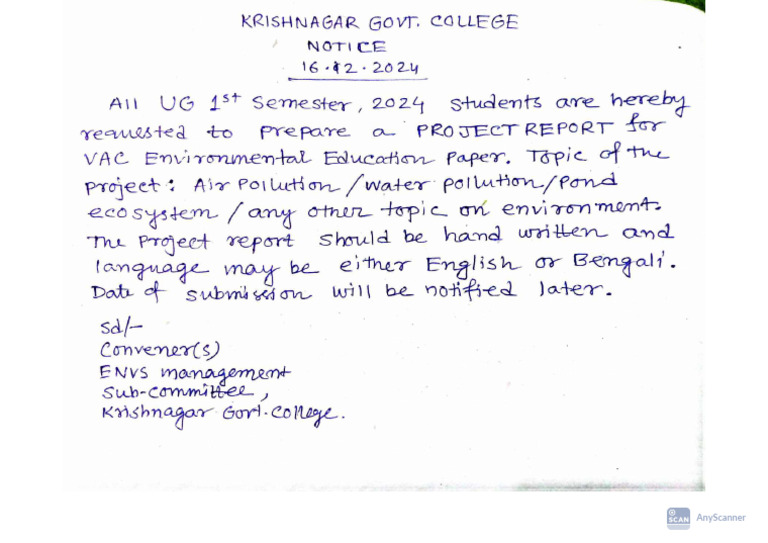 KRISHNAGAR GOVT. COLLEGE
NOTICE
16.12.2024
All UG 1st Semester, 2024 Students are hereby
requested to prepare a PROJECT REPORT for
VAC Environmental Education Paper. Topic of the
project: Air Pollution/water pollution/Pond
ecosystem/any other topic on environment.
The Project report should be hand written and
language may be either English or Bengali.
Date of submission will be notified later.
Sd/-
Convener(s)
ENVS management
Sub-committee,
Krishnagar Govt. College.
SCAN AnyScanner